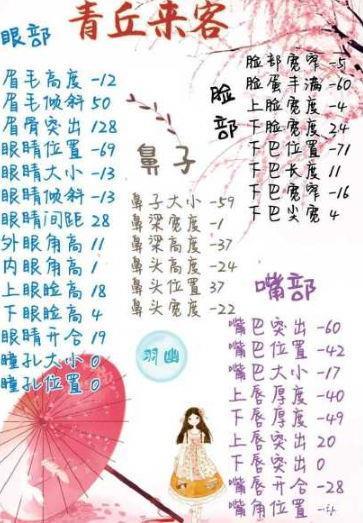 青丘来客
眼部
眉毛高度 -12
眉毛倾斜 50
眉骨突出 128
眼睛位置 -69
眼睛大小 -13
眼睛倾斜 -13
眼睛间距 28
外眼角高 11
内眼角高 1
上眼睑高 18
下眼睑高 4
眼睛开合 19
瞳孔大小 0
瞳孔位置 0
鼻子
鼻子大小 -59
鼻梁宽度 -1
鼻梁高度 -37
鼻头高度 -24
鼻头位置 37
鼻头宽度 -22
羽幽
脸部
脸部宽窄 -5
脸蛋丰满 -60
上脸宽度 -4
下脸宽度 24
下巴位置 -71
下巴长度 11
下巴宽窄 -16
下巴尖宽 4
嘴部
嘴巴突出 -60
嘴巴位置 -42
嘴巴大小 -17
上唇厚度 -40
下唇厚度 -49
上唇突出 20
下唇突出 0
嘴唇开合 -28
嘴角位置